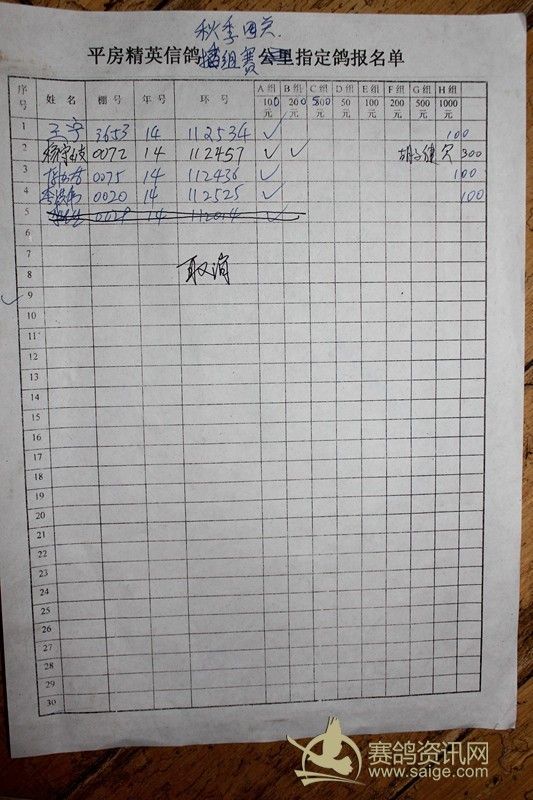 秋季四关
平房精英信鸽插组赛公里指定鸽报名单
序号 姓名 棚号 年号 环号 A组 B组 C组 D组 E组 F组 G组 H组
100元 200元 500元 50元 100元 200元 500元 1000元
1 王宁 3653 14 112534 ✓ 100
2 0072 14 112457 ✓ ✓ 欠 300
3 0075 14 112436 ✓ 100
4 0020 14 112525 ✓ 100
5 14 112014 ✓
6
7
8 取消
9
10
11
12
13
14
15
16
17
18
19
20
21
22
23
24
25
26
27
28
29
30
赛鸽资讯网
www.saige.com